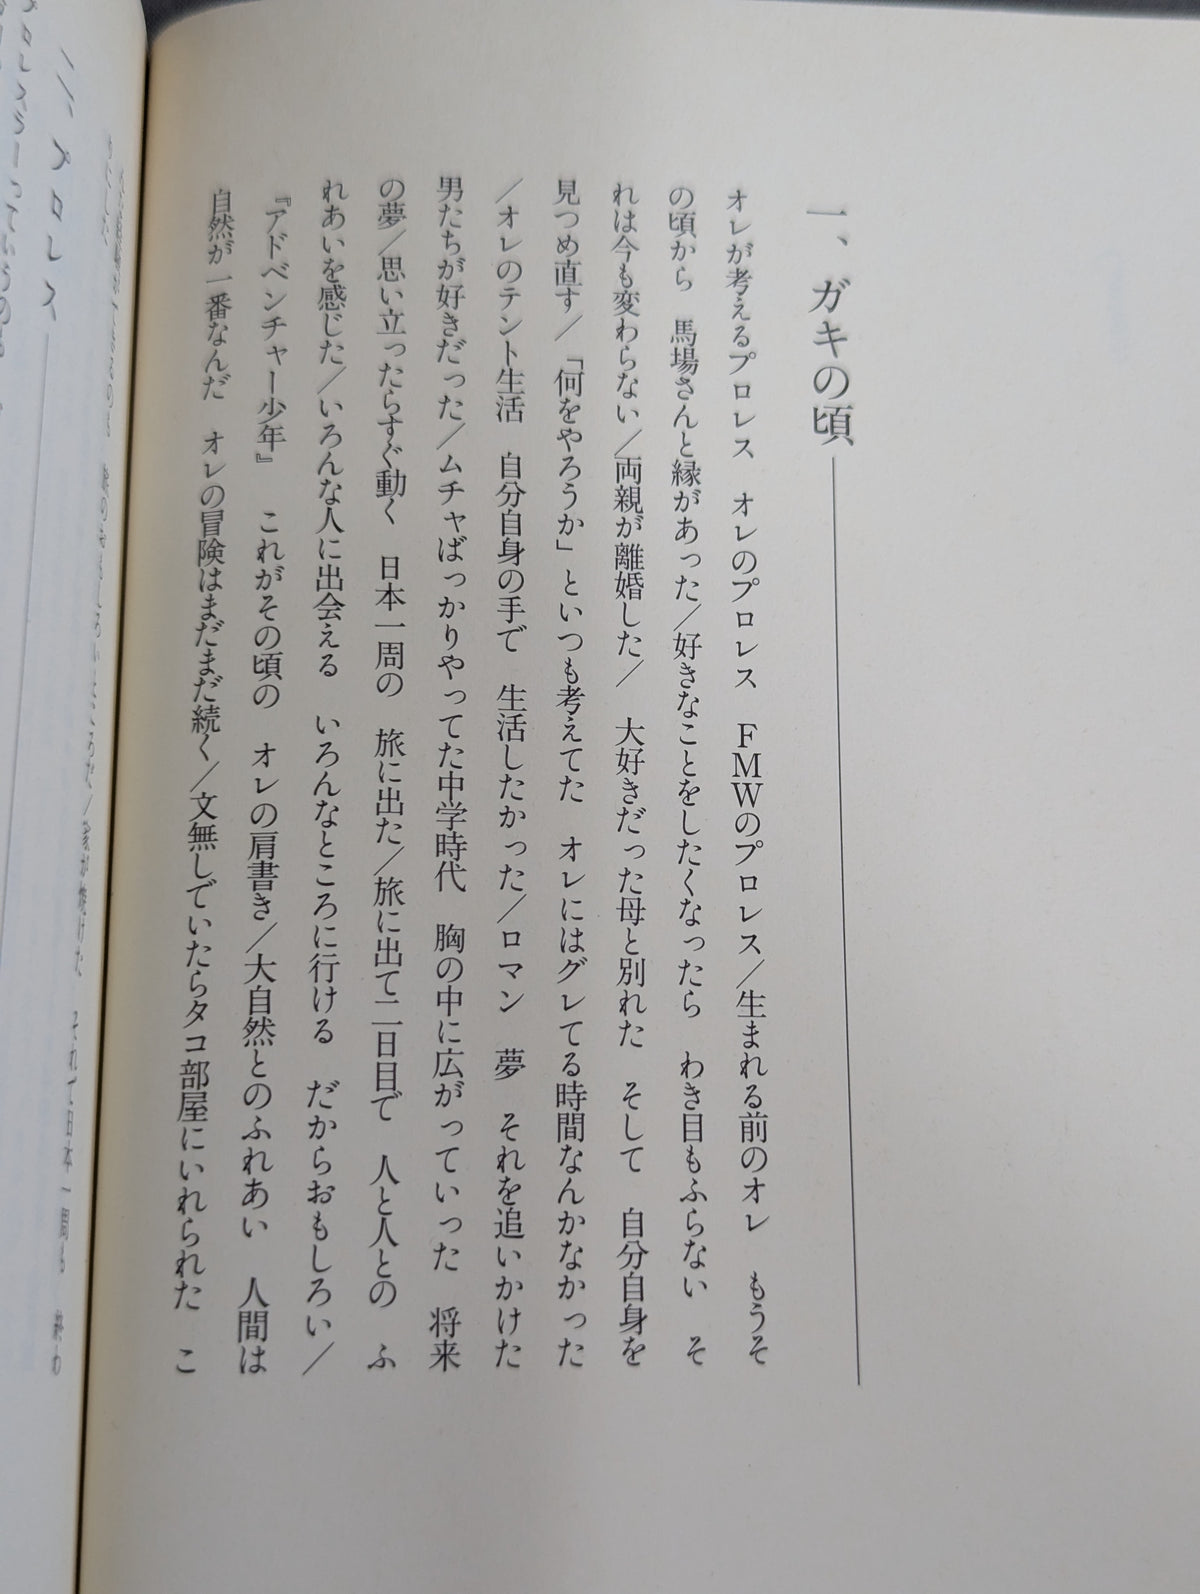 一、ガキの頃
オレが考えるプロレス　オレのプロレス　FMWのプロレス／生まれる前のオレ　もうそ
の頃から　馬場さんと縁があった／好きなことをしたくなったら　わき目もふらない　そ
れは今も変わらない／両親が離婚した／　大好きだった母と別れた　そして　自分自身を
見つめ直す／「何をやろうか」といつも考えてた　オレにはグレてる時間なんかなかった
／オレのテント生活　自分自身の手で　生活したかった／ロマン　夢　それを追いかけた
男たちが好きだった／ムチャばっかりやってた中学時代　胸の中に広がっていった　将来
の夢／思い立ったらすぐ動く　日本一周の　旅に出た／旅に出て二日目で　人と人との　ふ
れあいを感じた／いろんな人に出会える　いろんなところに行ける　だからおもしろい／
『アドベンチャー少年』　これがその頃の　オレの肩書き／大自然とのふれあい　人間は
自然が一番なんだ　オレの冒険はまだまだ続く／文無しでいたらタコ部屋にいれられた　こ
それで日本一周も　終わ
二、プロレス
プロレスラーっていうのは